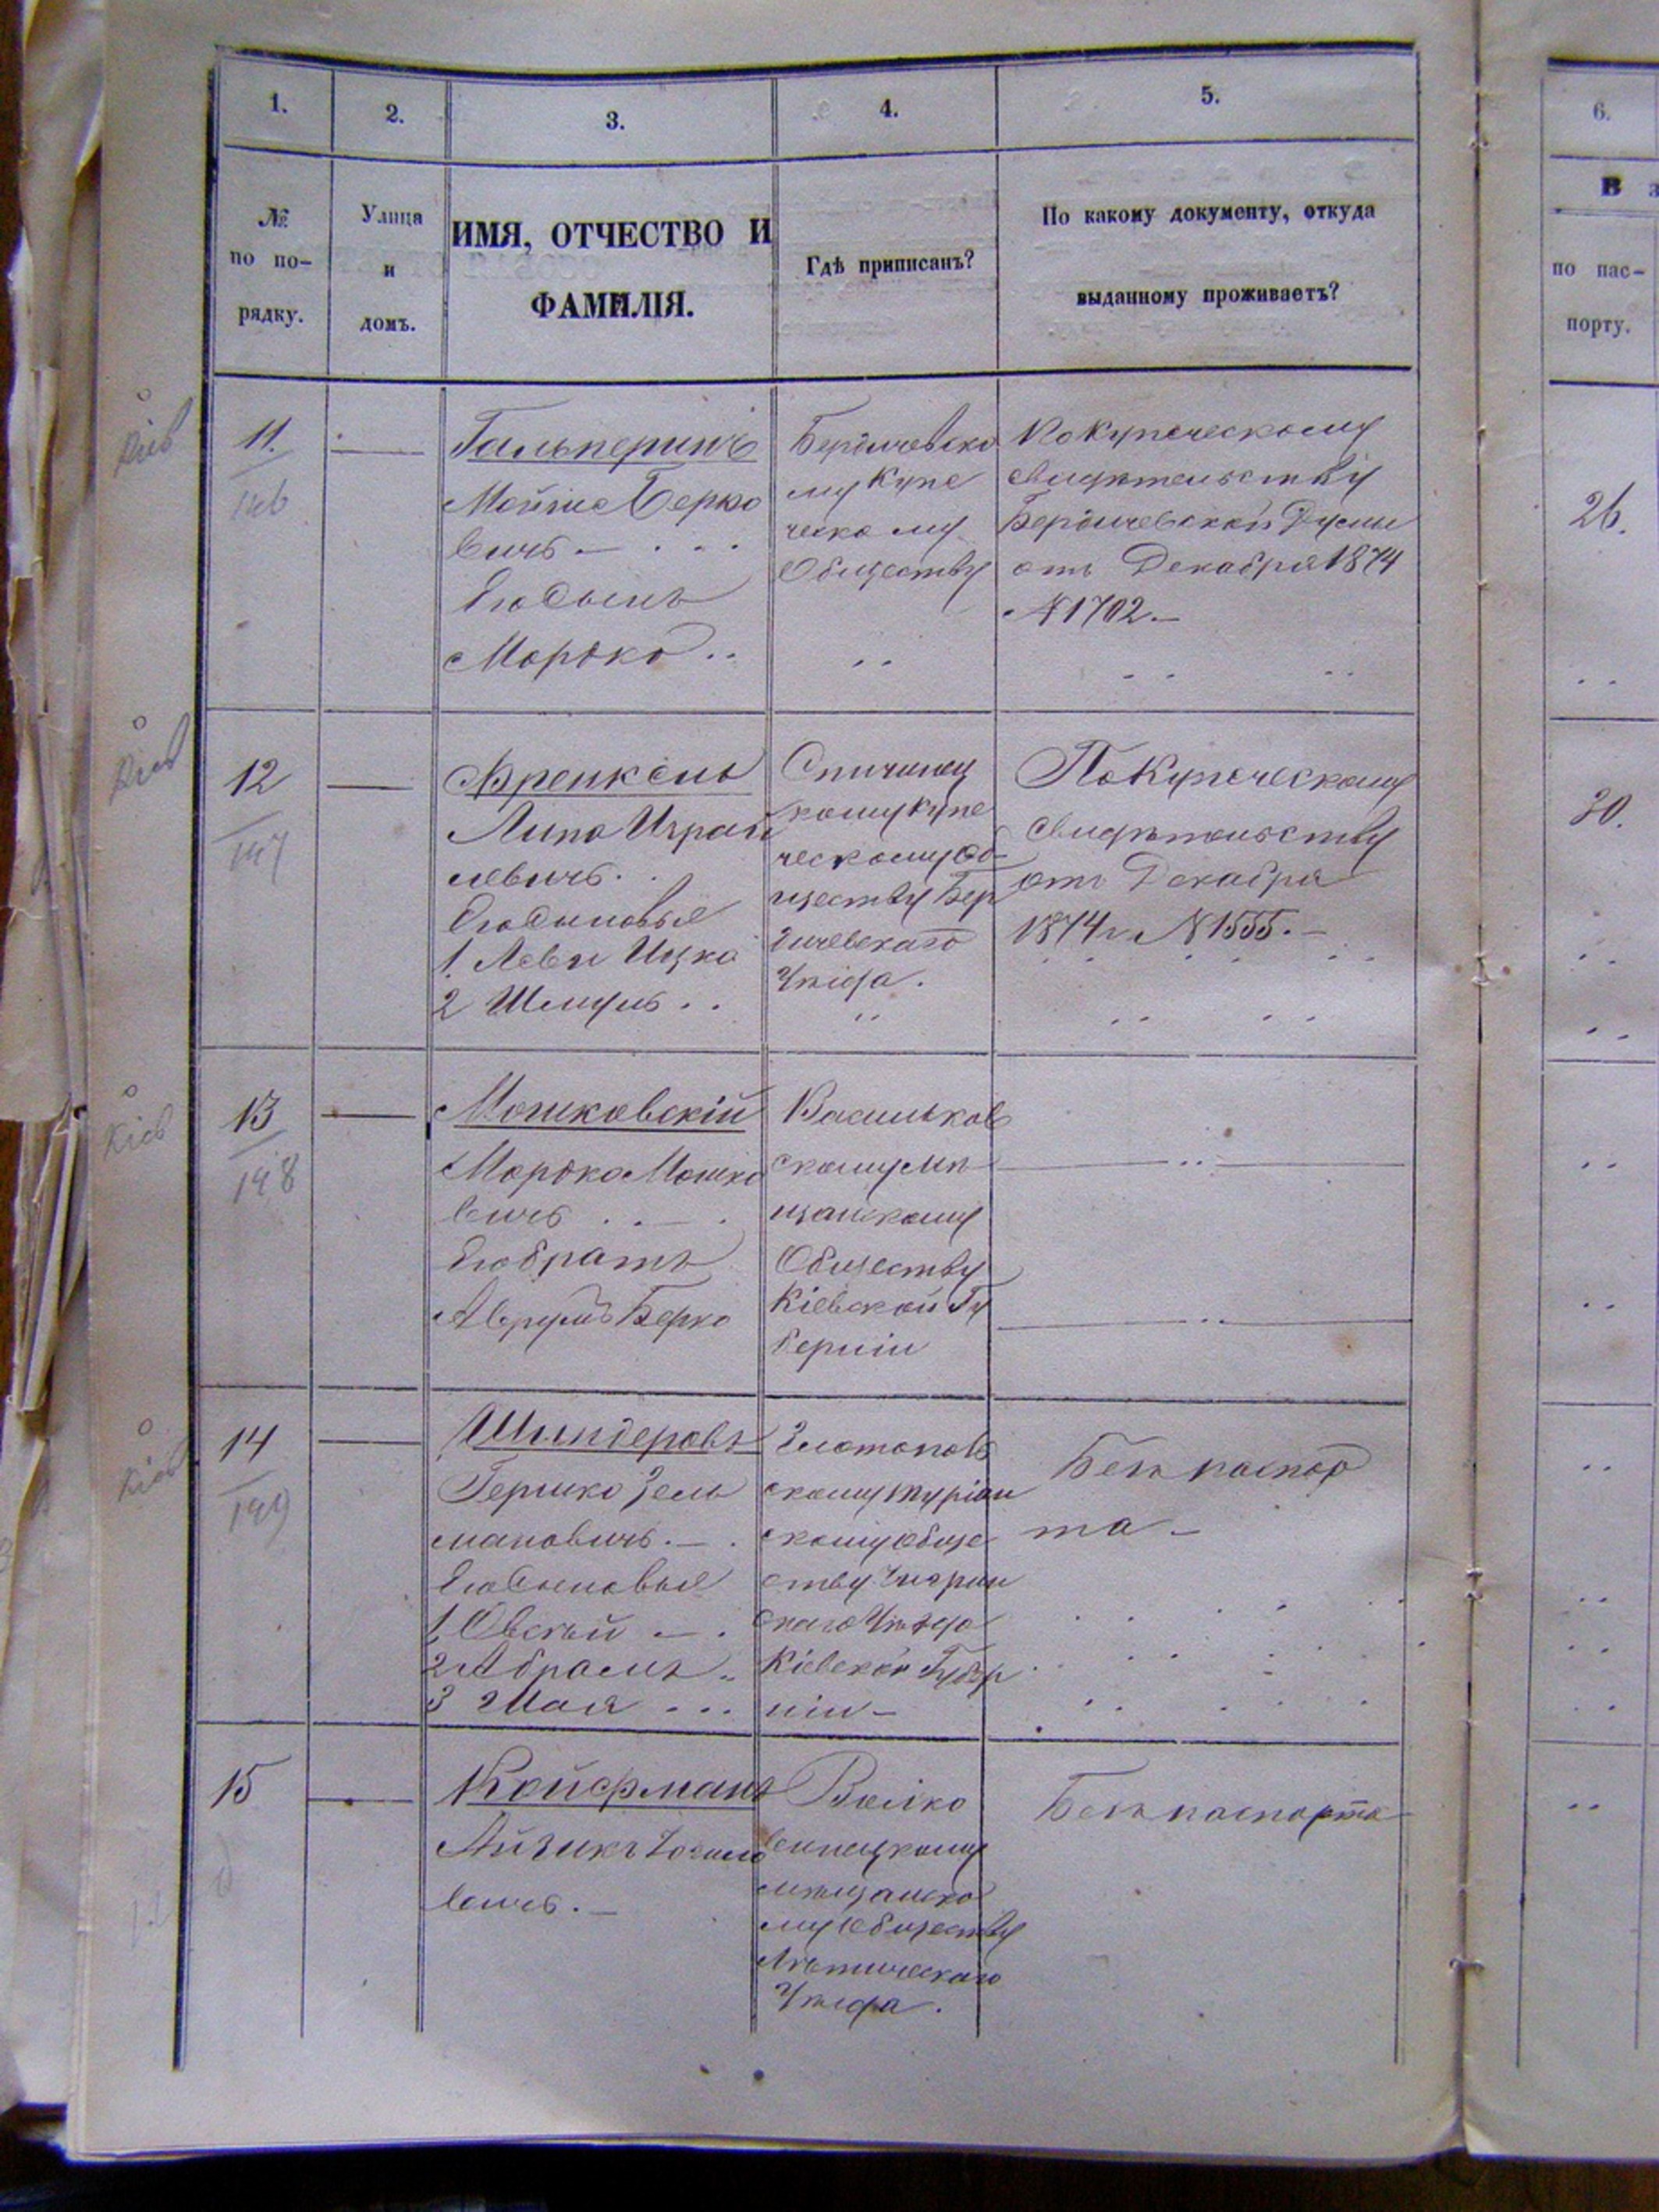 1. 2. 3. 4. 5. 6.
№ по по- рядку.
Улица и домъ.
ИМЯ, ОТЧЕСТВО И
ФАМИЛІЯ.
Гдѣ приписанъ?
По какому документу, откуда
выданному проживаетъ?
В
по пас-
порту.
Кіев
11.
146
Гальперинъ
Мойше Берко
вичъ
Его сынъ
Мордко
Бердичевско
му купе
ческому
Обществу
По Купеческому
свидѣтельству
Бердичевской Думы
отъ Декабря 1874
№ 1702.
26.
Кіев
12
147
Френкель
Липа Израй
левичъ
Его сыновья
1. Левъ Ицко
2 Шмуль
Спичинец
кому купе
ческому Об-
ществу Бер
дичевскаго
Уѣзда.
По Купеческому
свидѣтельству
отъ Декабря
1874 г. № 1555.
30.
Кіев
13
148
Мошковскій
Мордко Мошко
вичъ
Его братъ
Аврумъ Берко
Васильков
скому мѣ
щанскому
Обществу
Кіевской Гу
берніи
Кіев
14
149
Шиндеровъ
Гершко Зель
мановичъ
Его сыновья
1. Овсѣй
2 Абрамъ
3 Мая
Златопов
скому
скому обще
ству Чигрин
скаго Уѣзда
Кіевской Губер
ніи
Безъ паспор
та
15
Койфманъ
Айзикъ
вичъ.
винецкому
мѣщанско
му Обществу
Уѣзда.
Безъ паспорта